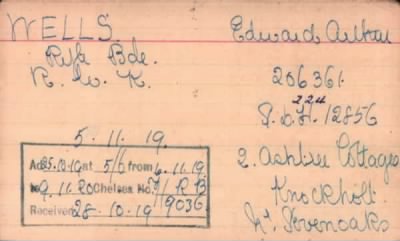 WELLS.
Edward Arthur
Rifle Bde.
R. W. K.
206361.
224
P. & H. 12856
5. 11. 19.
2. Ashtree Cottages
Knockholt
Nr Sevenoaks
Ad 25.10.19 at 5/6 from 6.11.19
to 9.11.20 Chelsea No. 7/ R B
Received 28-10-19 9036